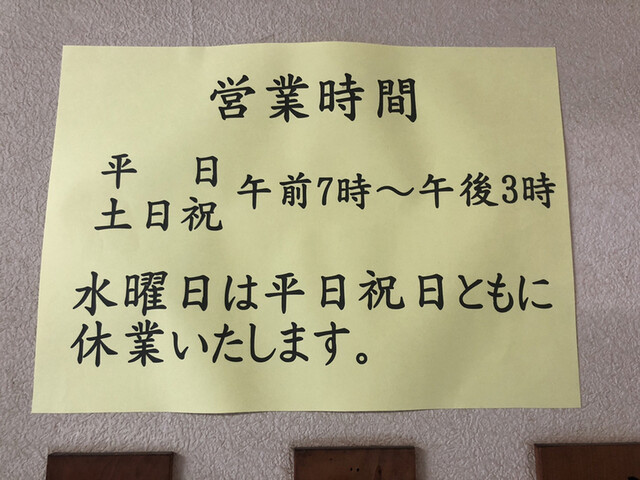 営業時間
平 日
土日祝
午前7時〜午後3時
水曜日は平日祝日ともに
休業いたします。